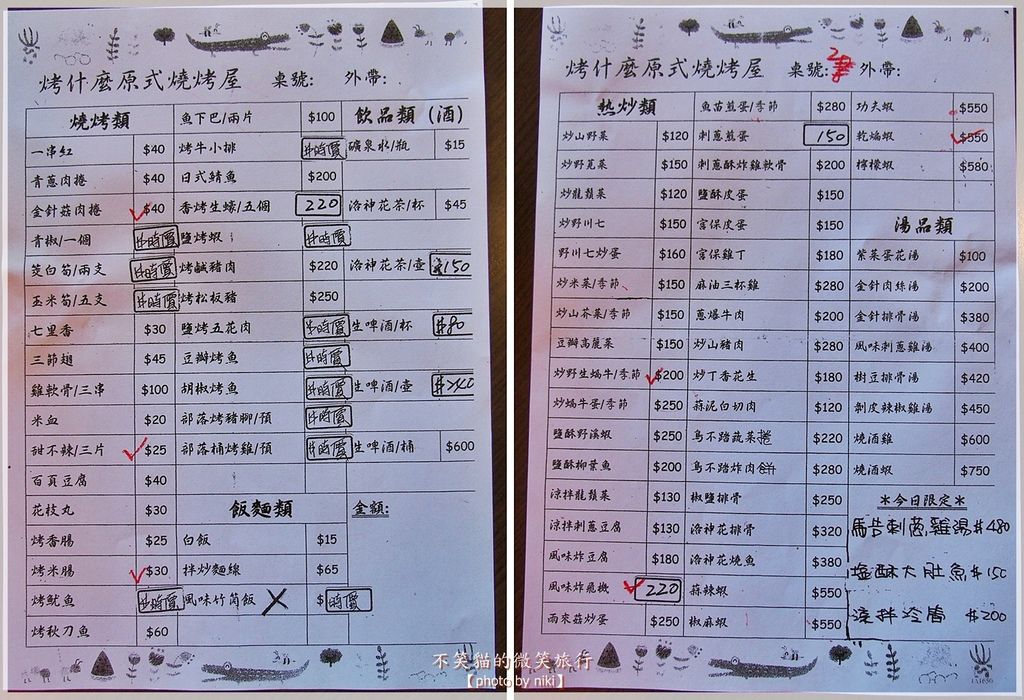 烤什麼原式燒烤屋 桌號: 外帶:
燒烤類 魚下巴/兩片 $100 飲品類 (酒)
一串紅 $40 烤牛小排 #時價 礦泉水/瓶 $15
青蔥肉捲 $40 日式鯖魚 $200
金針菇肉捲 $40 香烤生蠔/五個 220 洛神花茶/杯 $45
青椒/一個 #時價 鹽烤蝦 #時價
筊白筍/兩支 #時價 烤鹹豬肉 $220 洛神花茶/壺 $150
玉米筍/五支 #時價 烤松板豬 $250
七里香 $30 鹽烤五花肉 #時價 生啤酒/杯 $80
三節翅 $45 豆瓣烤魚 #時價
雞軟骨/三串 $100 胡椒烤魚 #時價 生啤酒/壺
米血 $20 部落烤豬腳/預 #時價
甜不辣/三片 $25 部落桶烤雞/預 #時價 生啤酒/桶 $600
百頁豆腐 $40
花枝丸 $30 飯麵類 金額:
烤香腸 $25 白飯 $15
烤米腸 $30 拌炒麵線 $65
烤魷魚 #時價 風味竹筒飯 X $ 時價
烤秋刀魚 $60
烤什麼原式燒烤屋 桌號: 外帶:
熱炒類 魚苗煎蛋/季節 $280 功夫蝦 $550
炒山野菜 $120 刺蔥煎蛋 150 乾煸蝦 $550
炒野莧菜 $150 刺蔥酥炸雞軟骨 $200 檸檬蝦 $580
炒龍鬚菜 $120 鹽酥皮蛋 $150
炒野川七 $150 宮保皮蛋 $150 湯品類
野川七炒蛋 $160 宮保雞丁 $180 紫菜蛋花湯 $100
炒米菜/季節 $150 麻油三杯雞 $280 金針肉絲湯 $200
炒山芥菜/季節 $150 蔥爆牛肉 $200 金針排骨湯 $380
豆瓣高麗菜 $150 炒山豬肉 $280 風味刺蔥雞湯 $400
炒野生蝸牛/季節 $200 炒丁香花生 $180 樹豆排骨湯 $420
炒蝸牛蛋/季節 $250 蒜泥白切肉 $120 剝皮辣椒雞湯 $450
鹽酥野溪蝦 $250 鳥不踏蔬菜捲 $220 燒酒雞 $600
鹽酥柳葉魚 $200 鳥不踏炸肉餅 $280 燒酒蝦 $750
涼拌龍鬚菜 $130 椒鹽排骨 $250 *今日限定*
涼拌刺蔥豆腐 $130 洛神花排骨 $320 馬告刺蔥雞湯 $480
風味炸豆腐 $180 洛神花燒魚 $380 塩酥大肚魚 $150
風味炸飛機 220 蒜辣蝦 $550
雨來菇炒蛋 $250 椒麻蝦 $550 涼拌冷筍 $200
不笑貓的微笑旅行
【photo by niki】